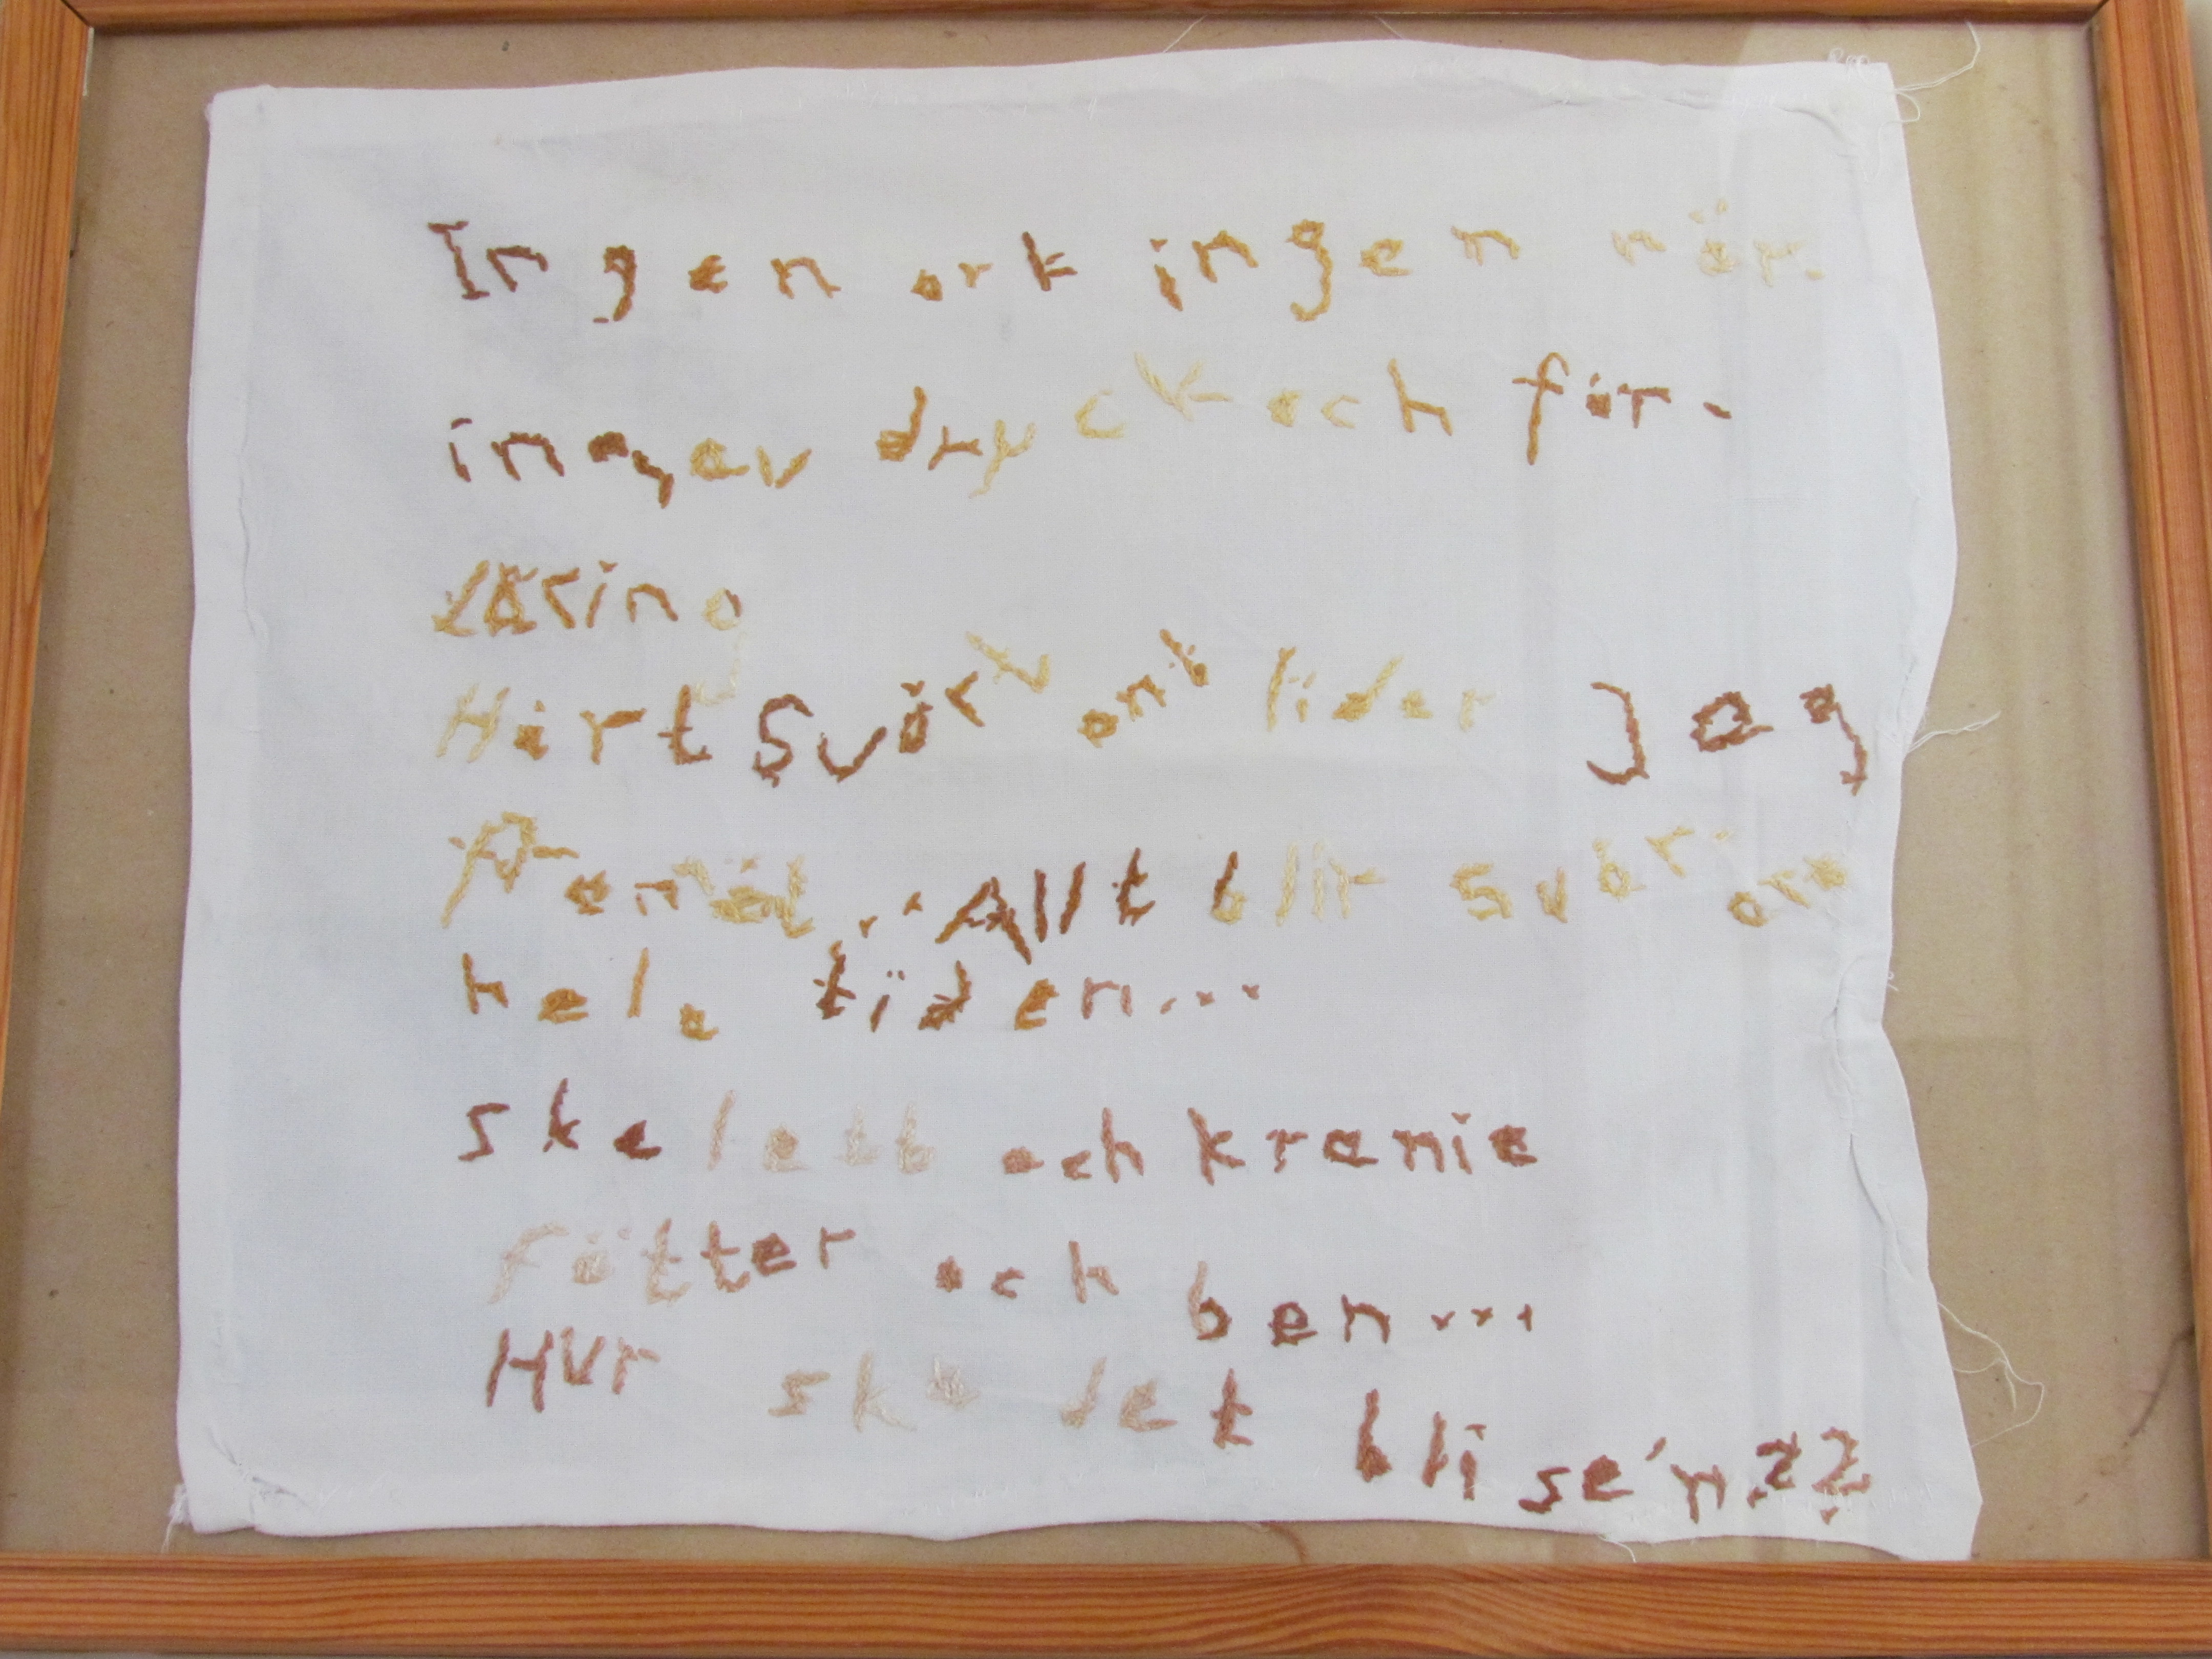 Ingen ork ingen när.
ingen dryck och för-
täring
Hårt Svårt ont lider Jag
Allt blir svår ora
hela tiden...
skelett och kranie
Fötter och ben...
HUr ska det bli se'n??